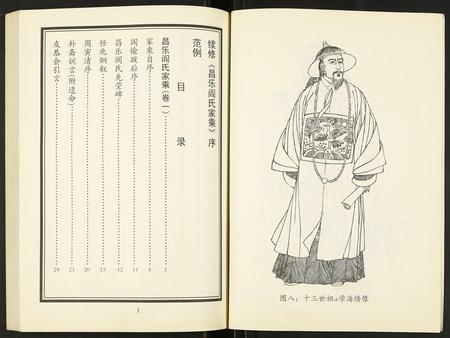 续修《昌乐阎氏家乘》序
范例
目 录
昌乐阎氏家乘（卷一）…………1
家乘自序…………3
阎愉跋后序…………11
昌乐阎氏先茔碑…………12
任兆炯叙…………13
周寅清序…………20
朴斋训言（附遗命）…………23
友恭会引言…………29
1
图八：十三世祖学海绣像